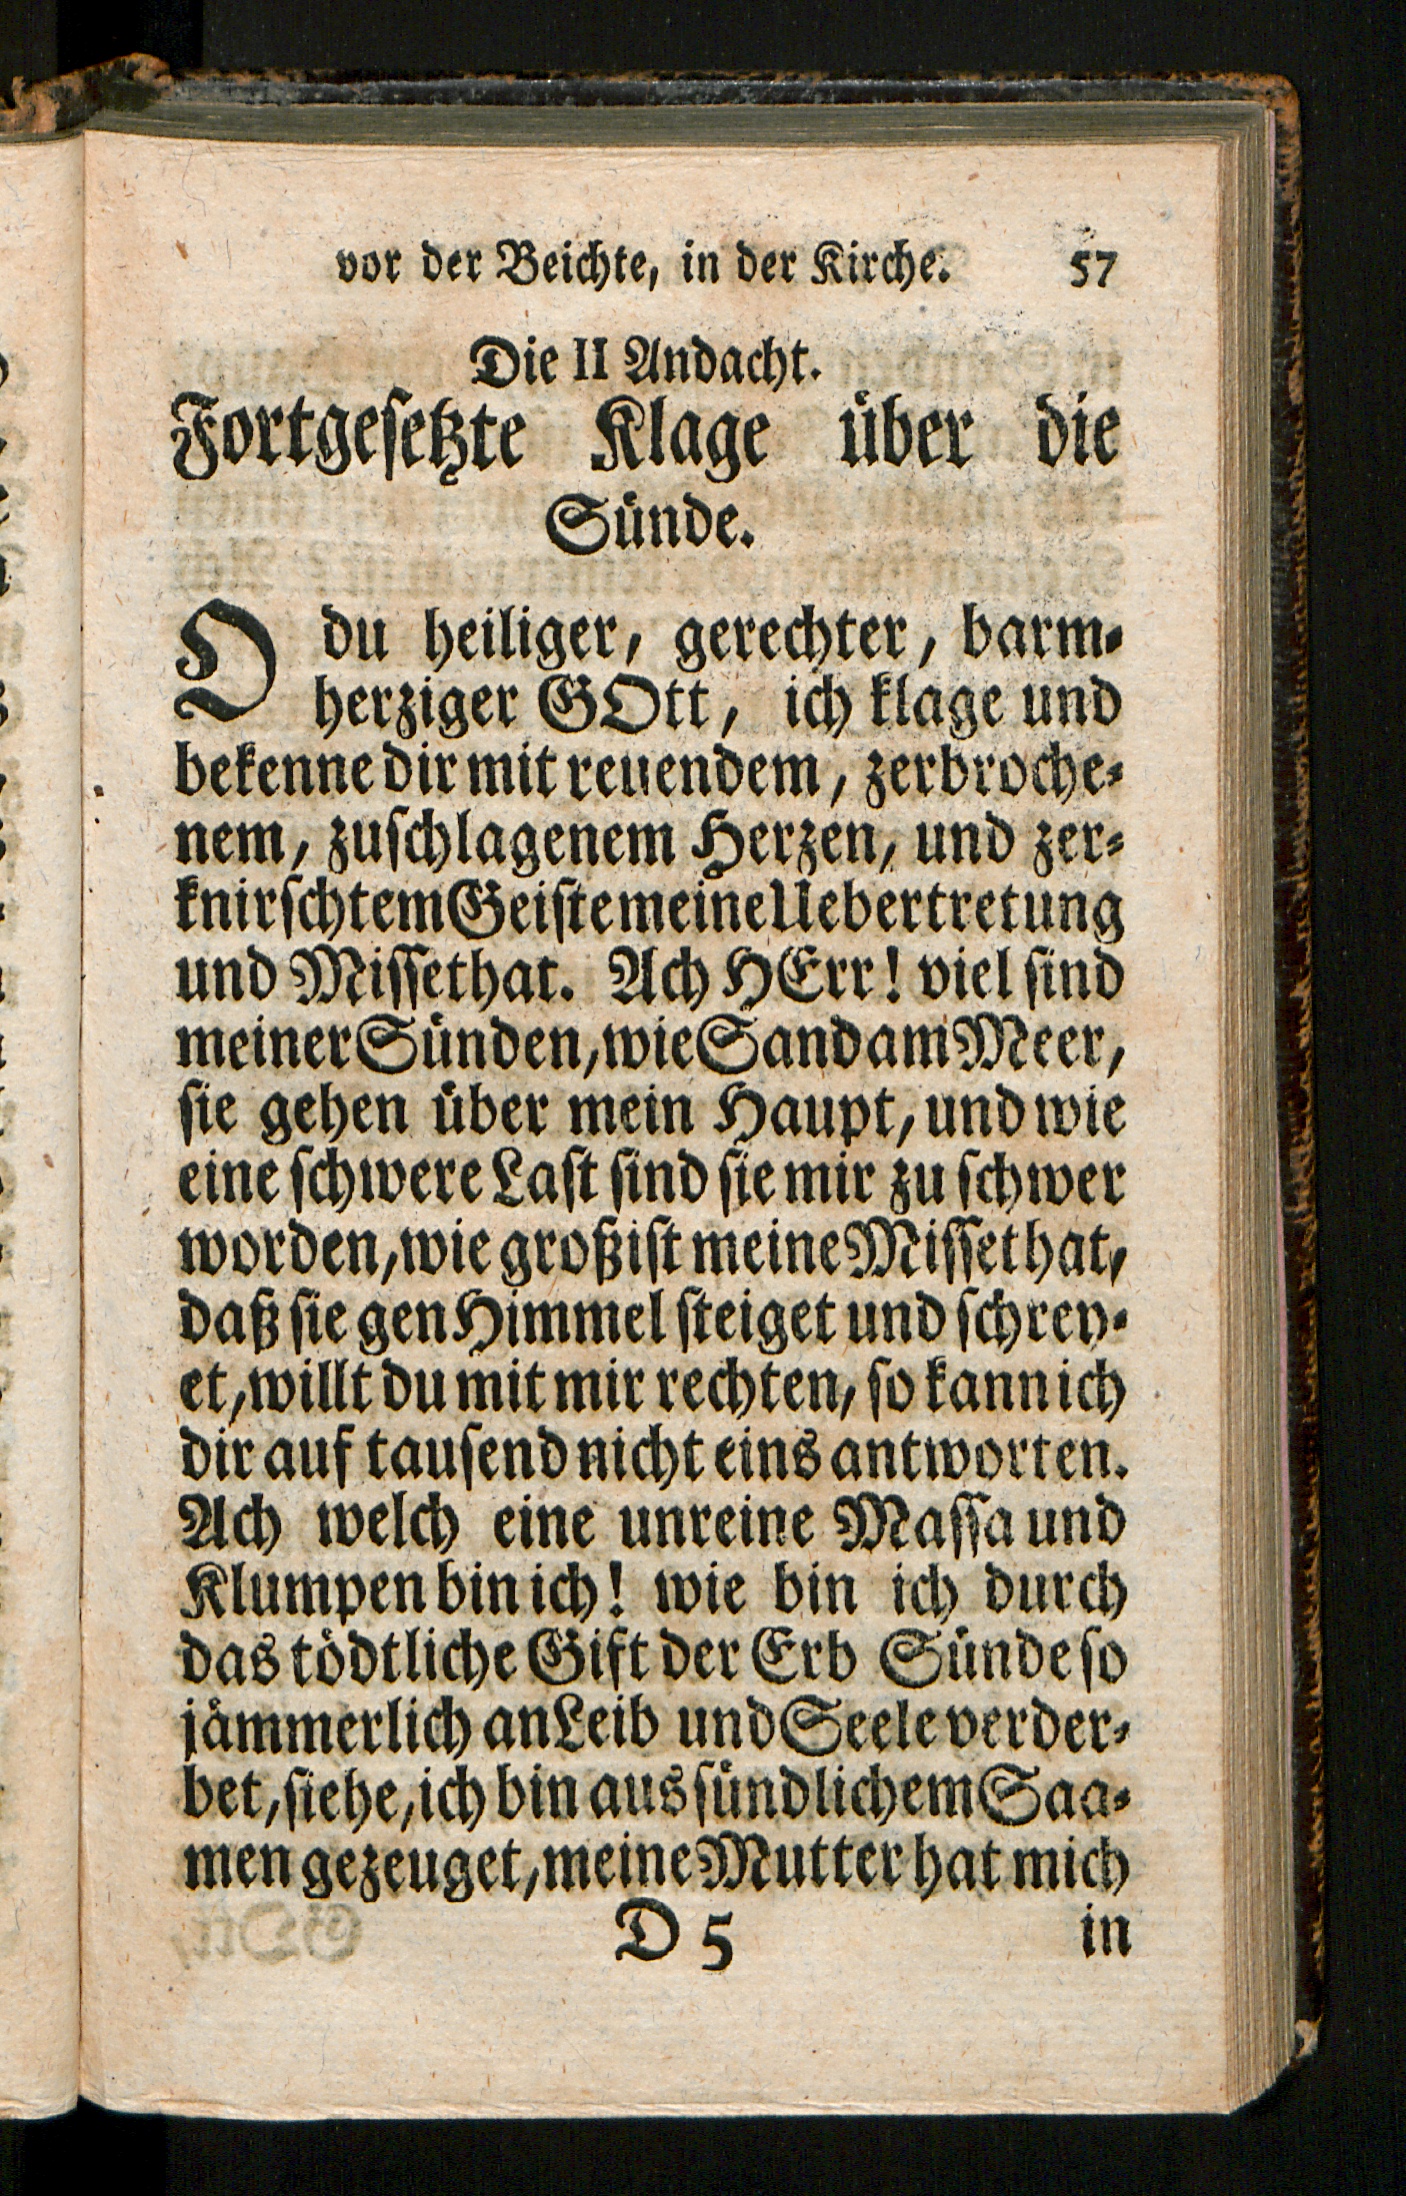 vor der Beichte, in der Kirche. 57
Die II Andacht.
Fortgesetzte Klage über die
Sünde.
O du heiliger, gerechter, barm-
herziger GOtt, ich klage und
bekenne dir mit reuendem, zerbroche-
nem, zuschlagenem Herzen, und zer-
knirschtem Geiste meine Uebertretung
und Missethat. Ach HErr! viel sind
meiner Sünden, wie Sand am Meer,
sie gehen über mein Haupt, und wie
eine schwere Last sind sie mir zu schwer
worden, wie groß ist meine Missethat,
daß sie gen Himmel steiget und schrey-
et, willt du mit mir rechten, so kann ich
dir auf tausend nicht eins antworten.
Ach welch eine unreine Massa und
Klumpen bin ich! wie bin ich durch
das tödtliche Gift der Erb Sünde so
jämmerlich an Leib und Seele verder-
bet, siehe, ich bin aus sündlichem Saa-
men gezeuget, meine Mutter hat mich
D 5 in